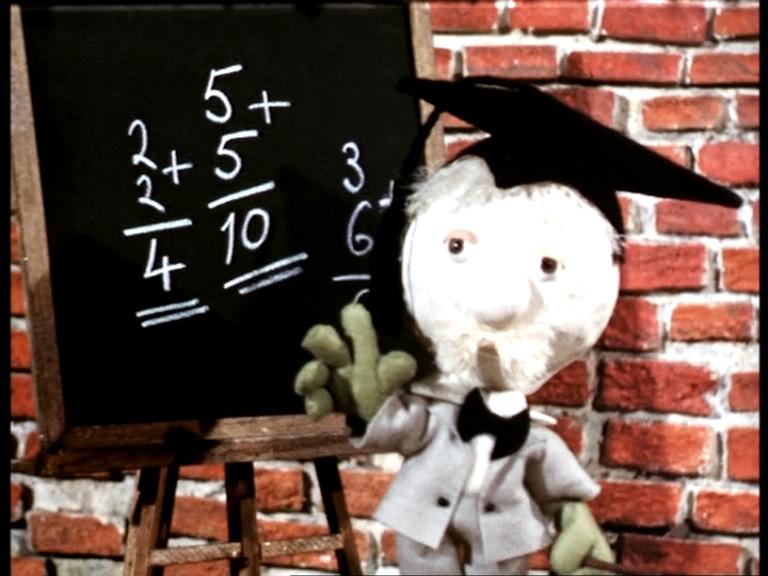 2
2 +
4
5 +
5
10
3
6